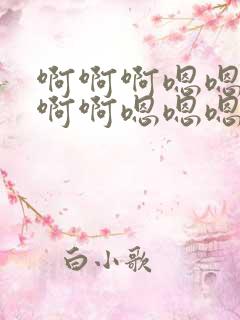 啊啊啊嗯嗯
啊啊嗯嗯嗯
白小歌